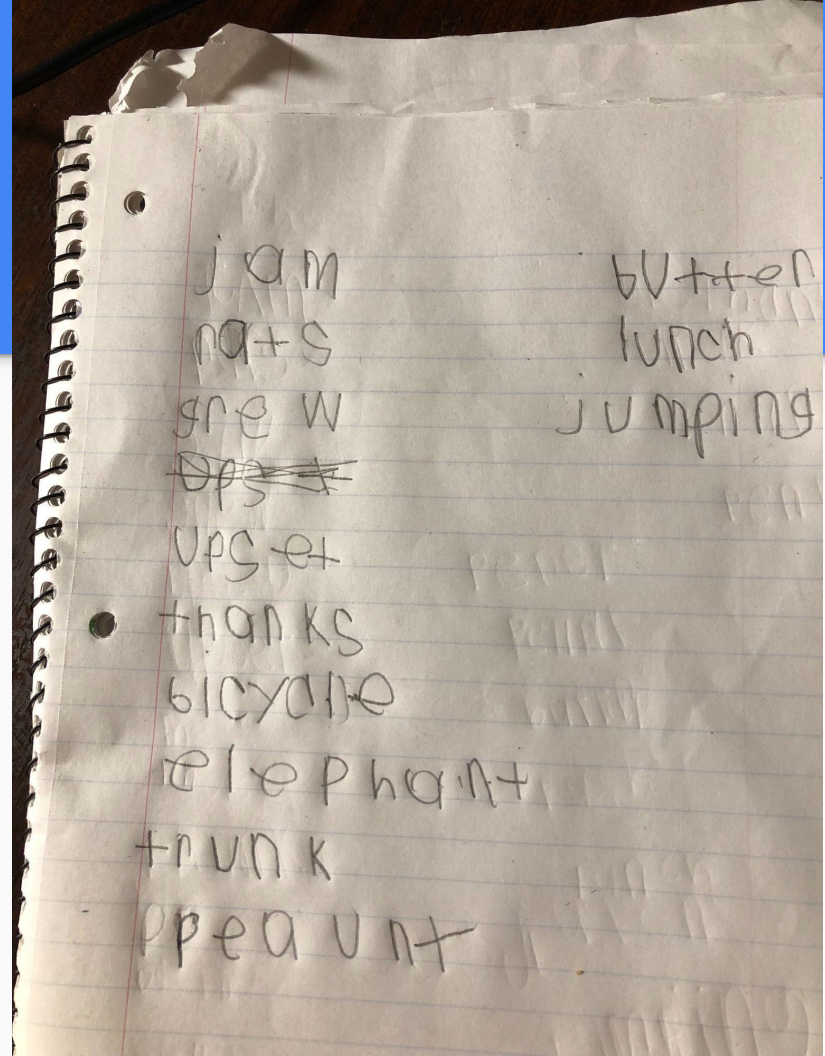 jam
rats
grew
upset
thanks
elephant
trunk
peaunt
butter
lunch
jumping